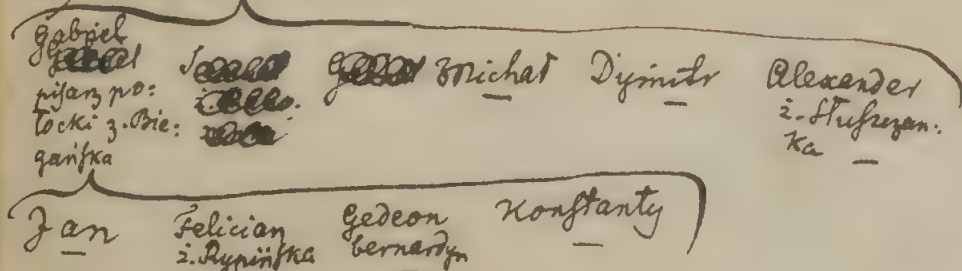 Gabriel
pisarz po:
łocki z. Bie:
gańska
Michał
Dymitr
Alexander
ż. Słuszczan:
ka
Jan
Felician
ż. Rypińska
Gedeon
bernardyn
Konstanty